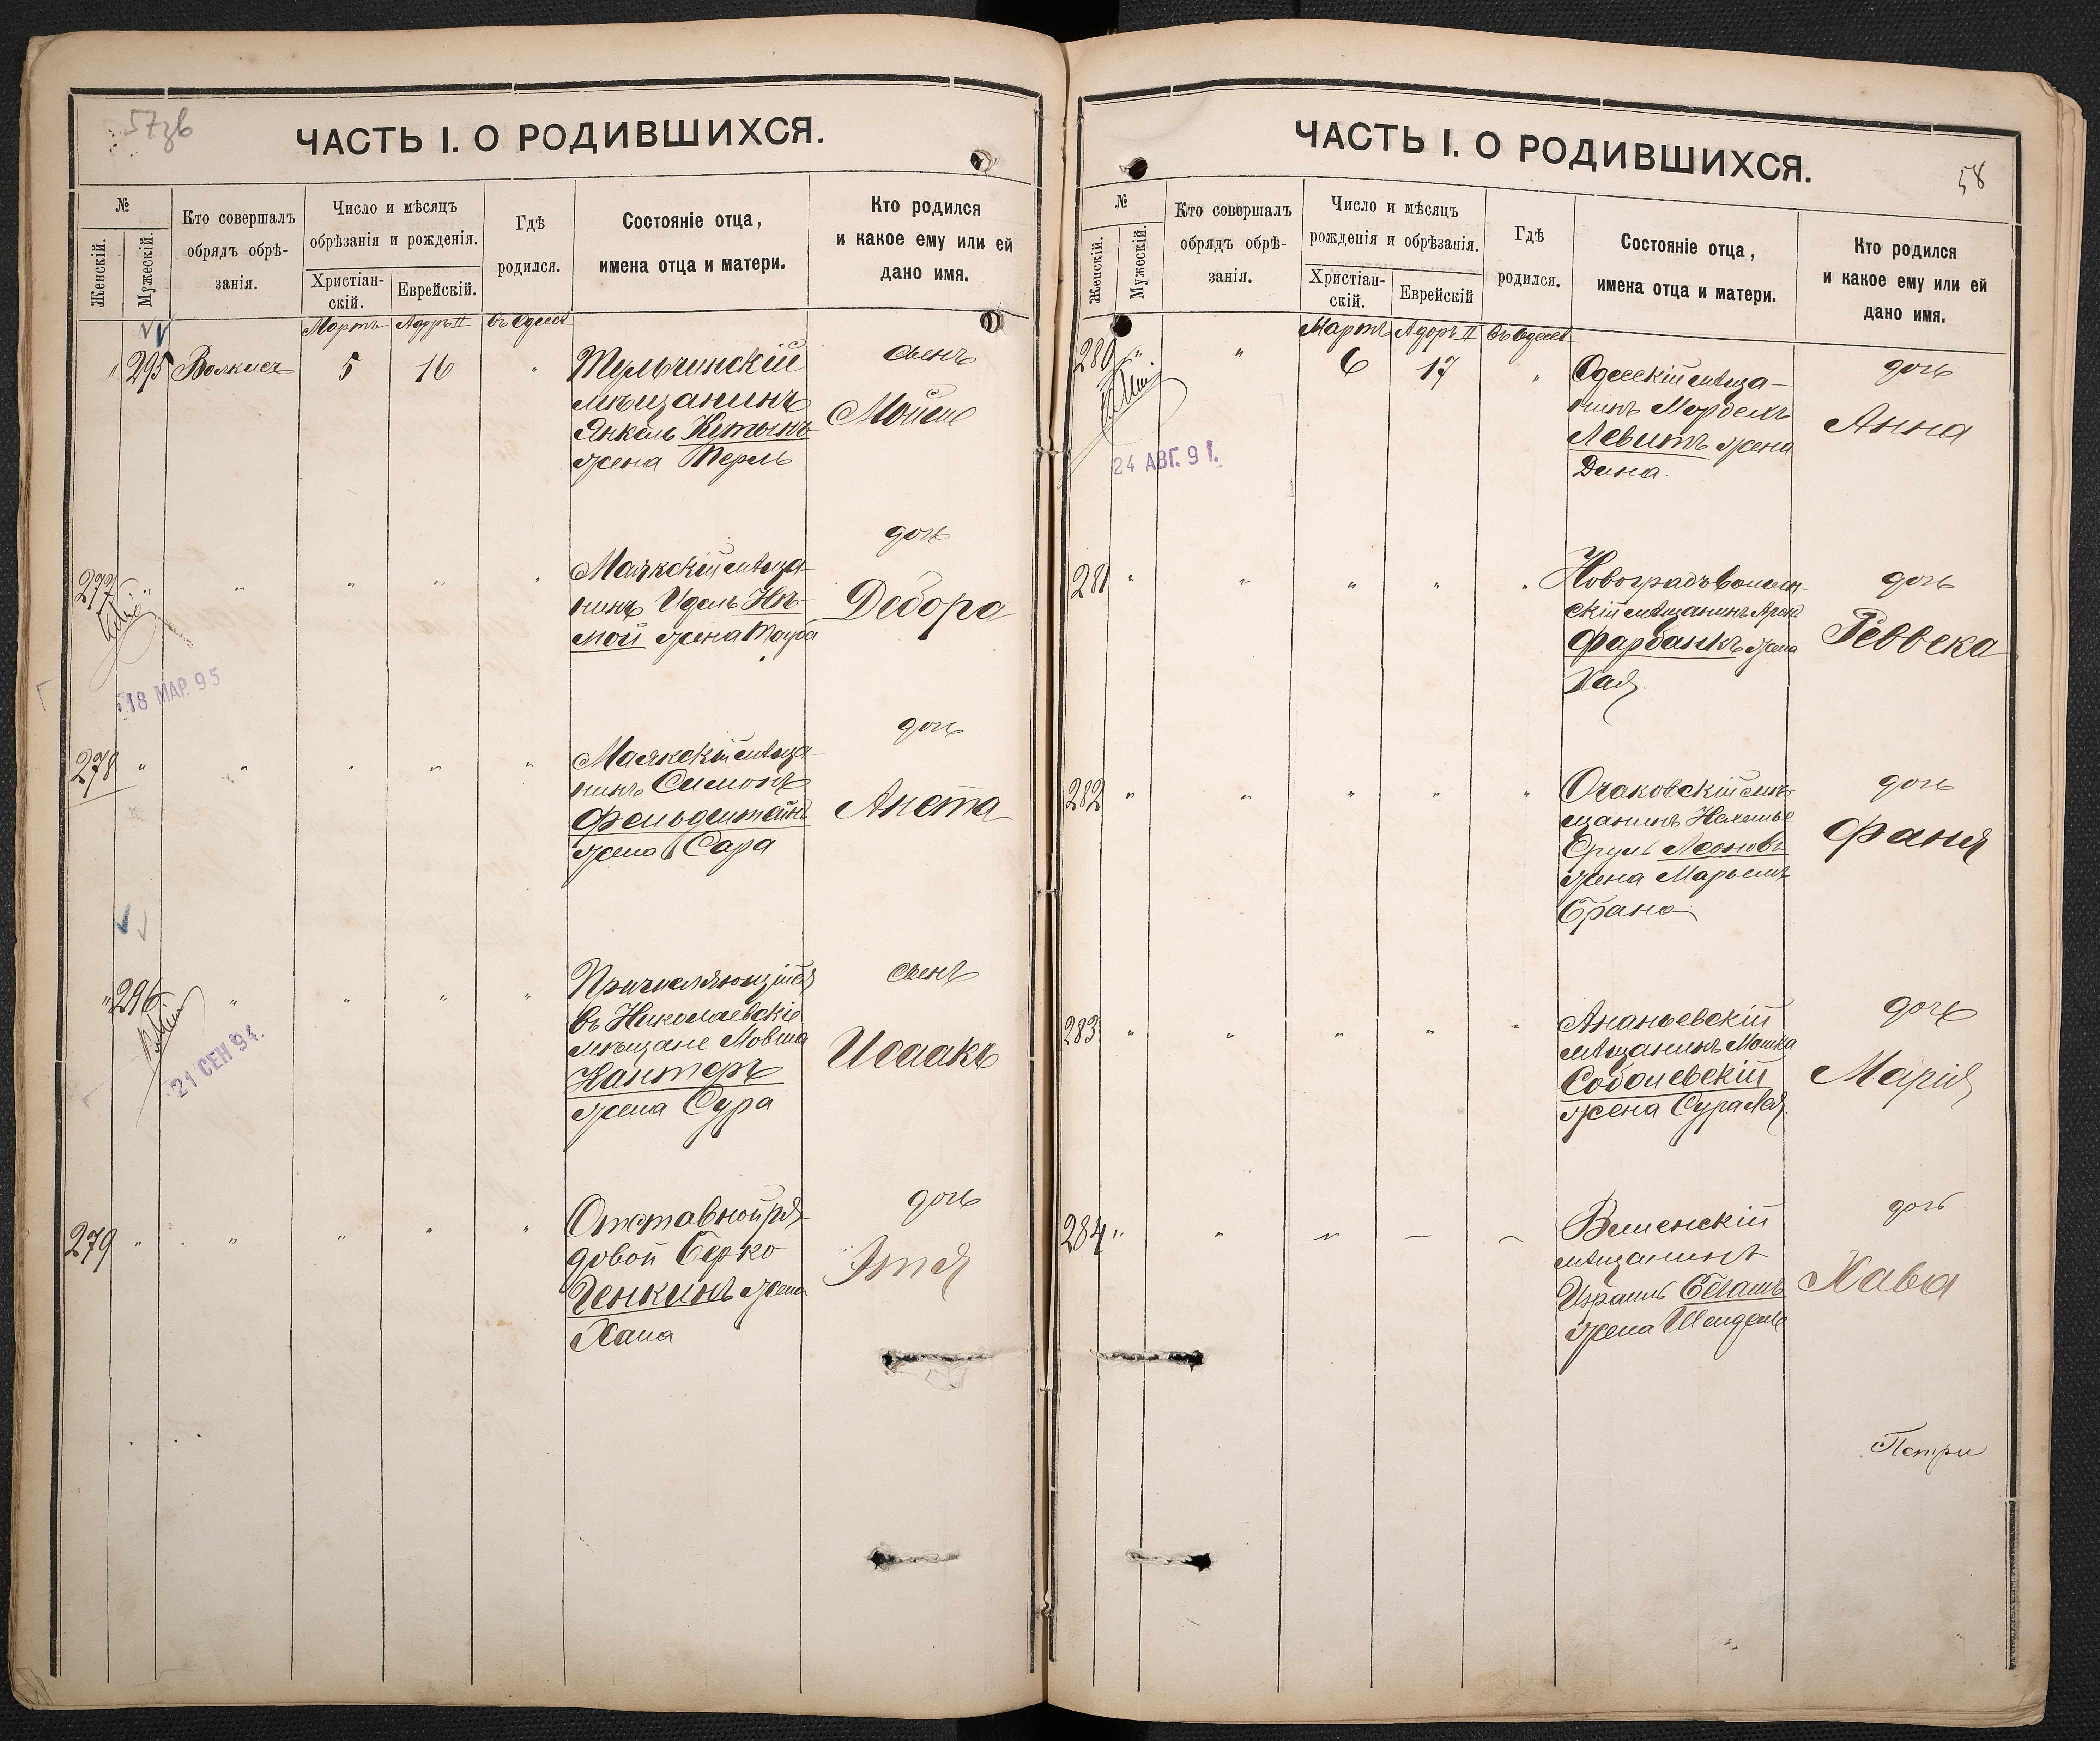 57зв
ЧАСТЬ I. О РОДИВШИХСЯ.
№
Женскій.
Мужескій.
Кто совершалъ
обрядъ обрѣ-
занія.
Число и мѣсяцъ
обрѣзанія и рожденія.
Христіан-
скій.
Еврейскій.
Гдѣ
родился.
Состояніе отца,
имена отца и матери.
Кто родился
и какое ему или ей
дано имя.
Мартъ Адоръ II въ Одессѣ
" 295 5 16 "
Тульчинскій
мѣщанинъ
Янкель
жена Перль
сынъ
Мойсе
277 " " " " "
Маякскій мѣща-
нинъ Идель Нѣ-
мой жена Тауба
дочь
Дебора
18 МАР. 95.
278 " " " " "
Маякскій мѣща-
нинъ Симонъ
Фельдштейнъ
жена Сара
дочь
Анета
" 296 " " " "
Причисляющійся
въ Николаевскіе
мѣщане Мовша
Кантеръ
жена Сура
сынъ
Исаакъ
21 СЕН 94.
279 " " " " "
Отставной ря-
довой Берко
Генкинъ жена
Хана
дочь
Этя
ЧАСТЬ I. О РОДИВШИХСЯ.
58
№
Женскій.
Мужескій.
Кто совершалъ
обрядъ обрѣ-
занія.
Число и мѣсяцъ
рожденія и обрѣзанія.
Христіан-
скій.
Еврейскій
Гдѣ
родился.
Состояніе отца,
имена отца и матери.
Кто родился
и какое ему или ей
дано имя.
Мартъ Адоръ II въ Одессѣ
280 " " 6 17 "
Одесскій мѣща-
нинъ Мордехъ
Левитъ жена
Дина.
дочь
Анна
24 АВГ. 91.
281 " " " " "
Новоградъволын-
скій мѣщанинъ Аронъ
Фарбанкъ жена
Хая.
дочь
Реввека
282 " " " " "
Очаковскій мѣ-
щанинъ
Сруль Леоновъ
жена Марьемъ
Брана
дочь
Фаня
283 " " " " "
Ананьевскій
мѣщанинъ Мошка
Соболевскій
жена Сура Лея.
дочь
Марія
284 " " " – –
Виленскій
мѣщанинъ
Израиль
жена Шендель
дочь
Хава
Петри